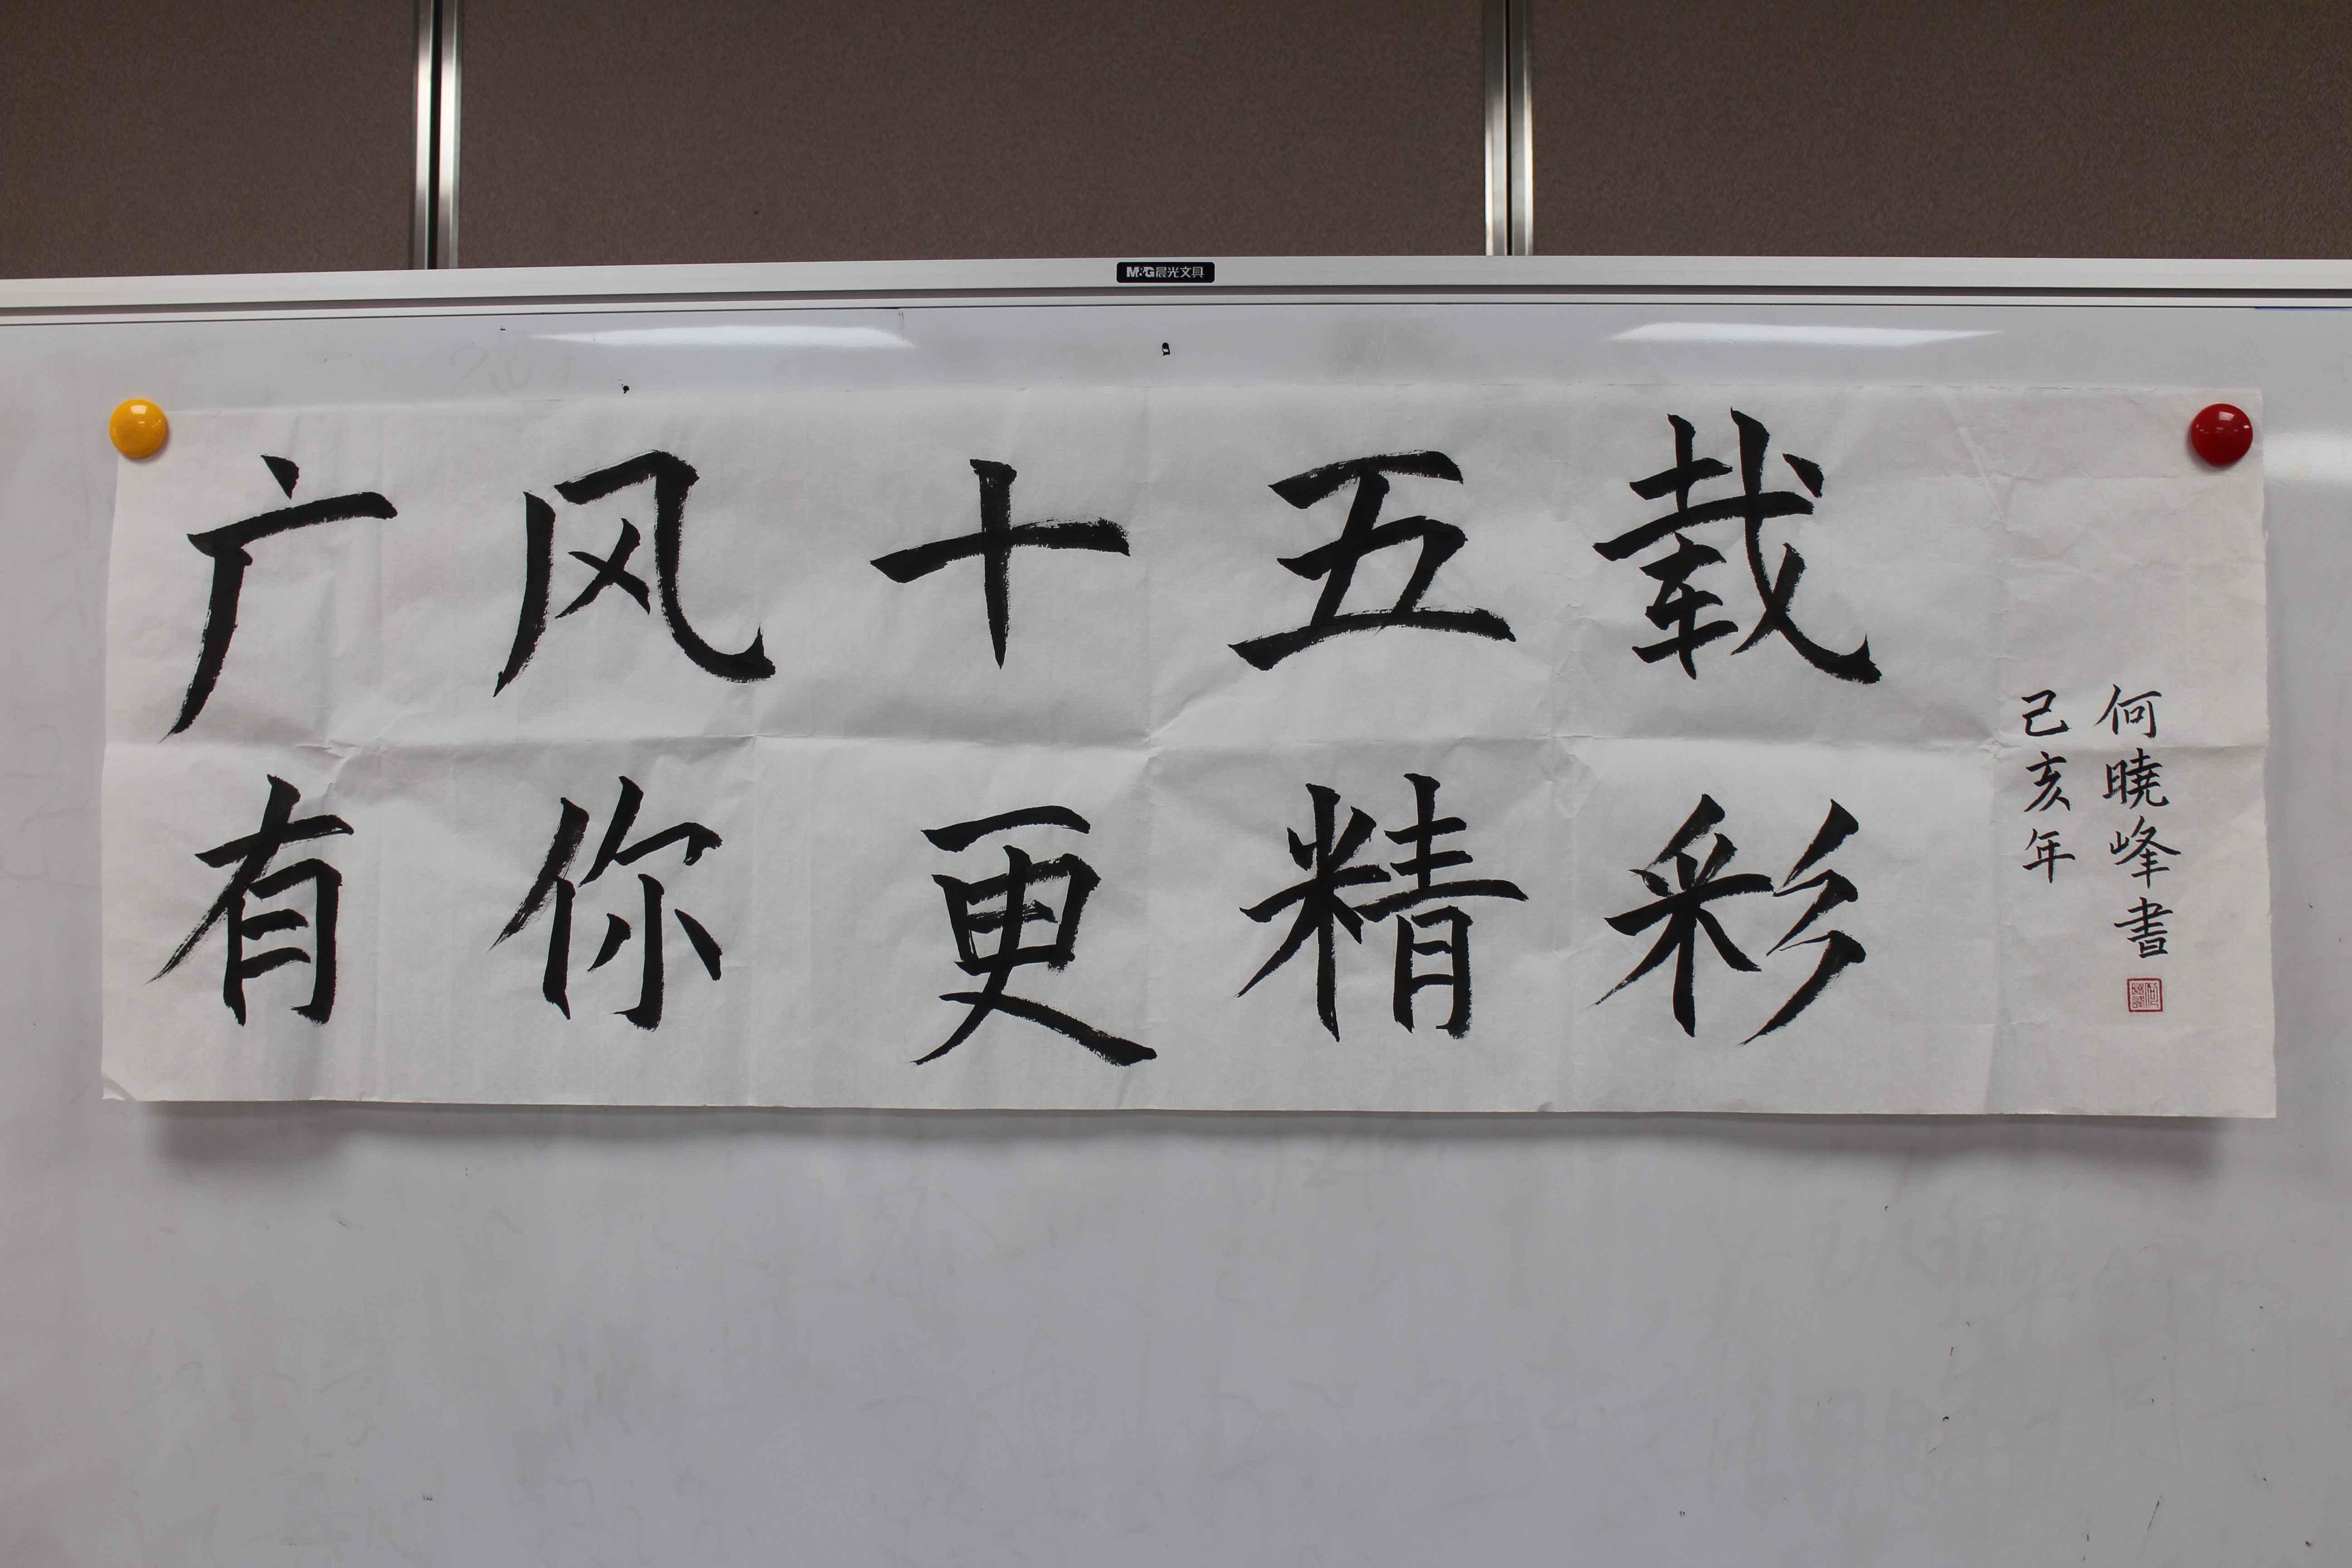 M&G晨光文具
广风十五载
有你更精彩
何曉峰書
己亥年